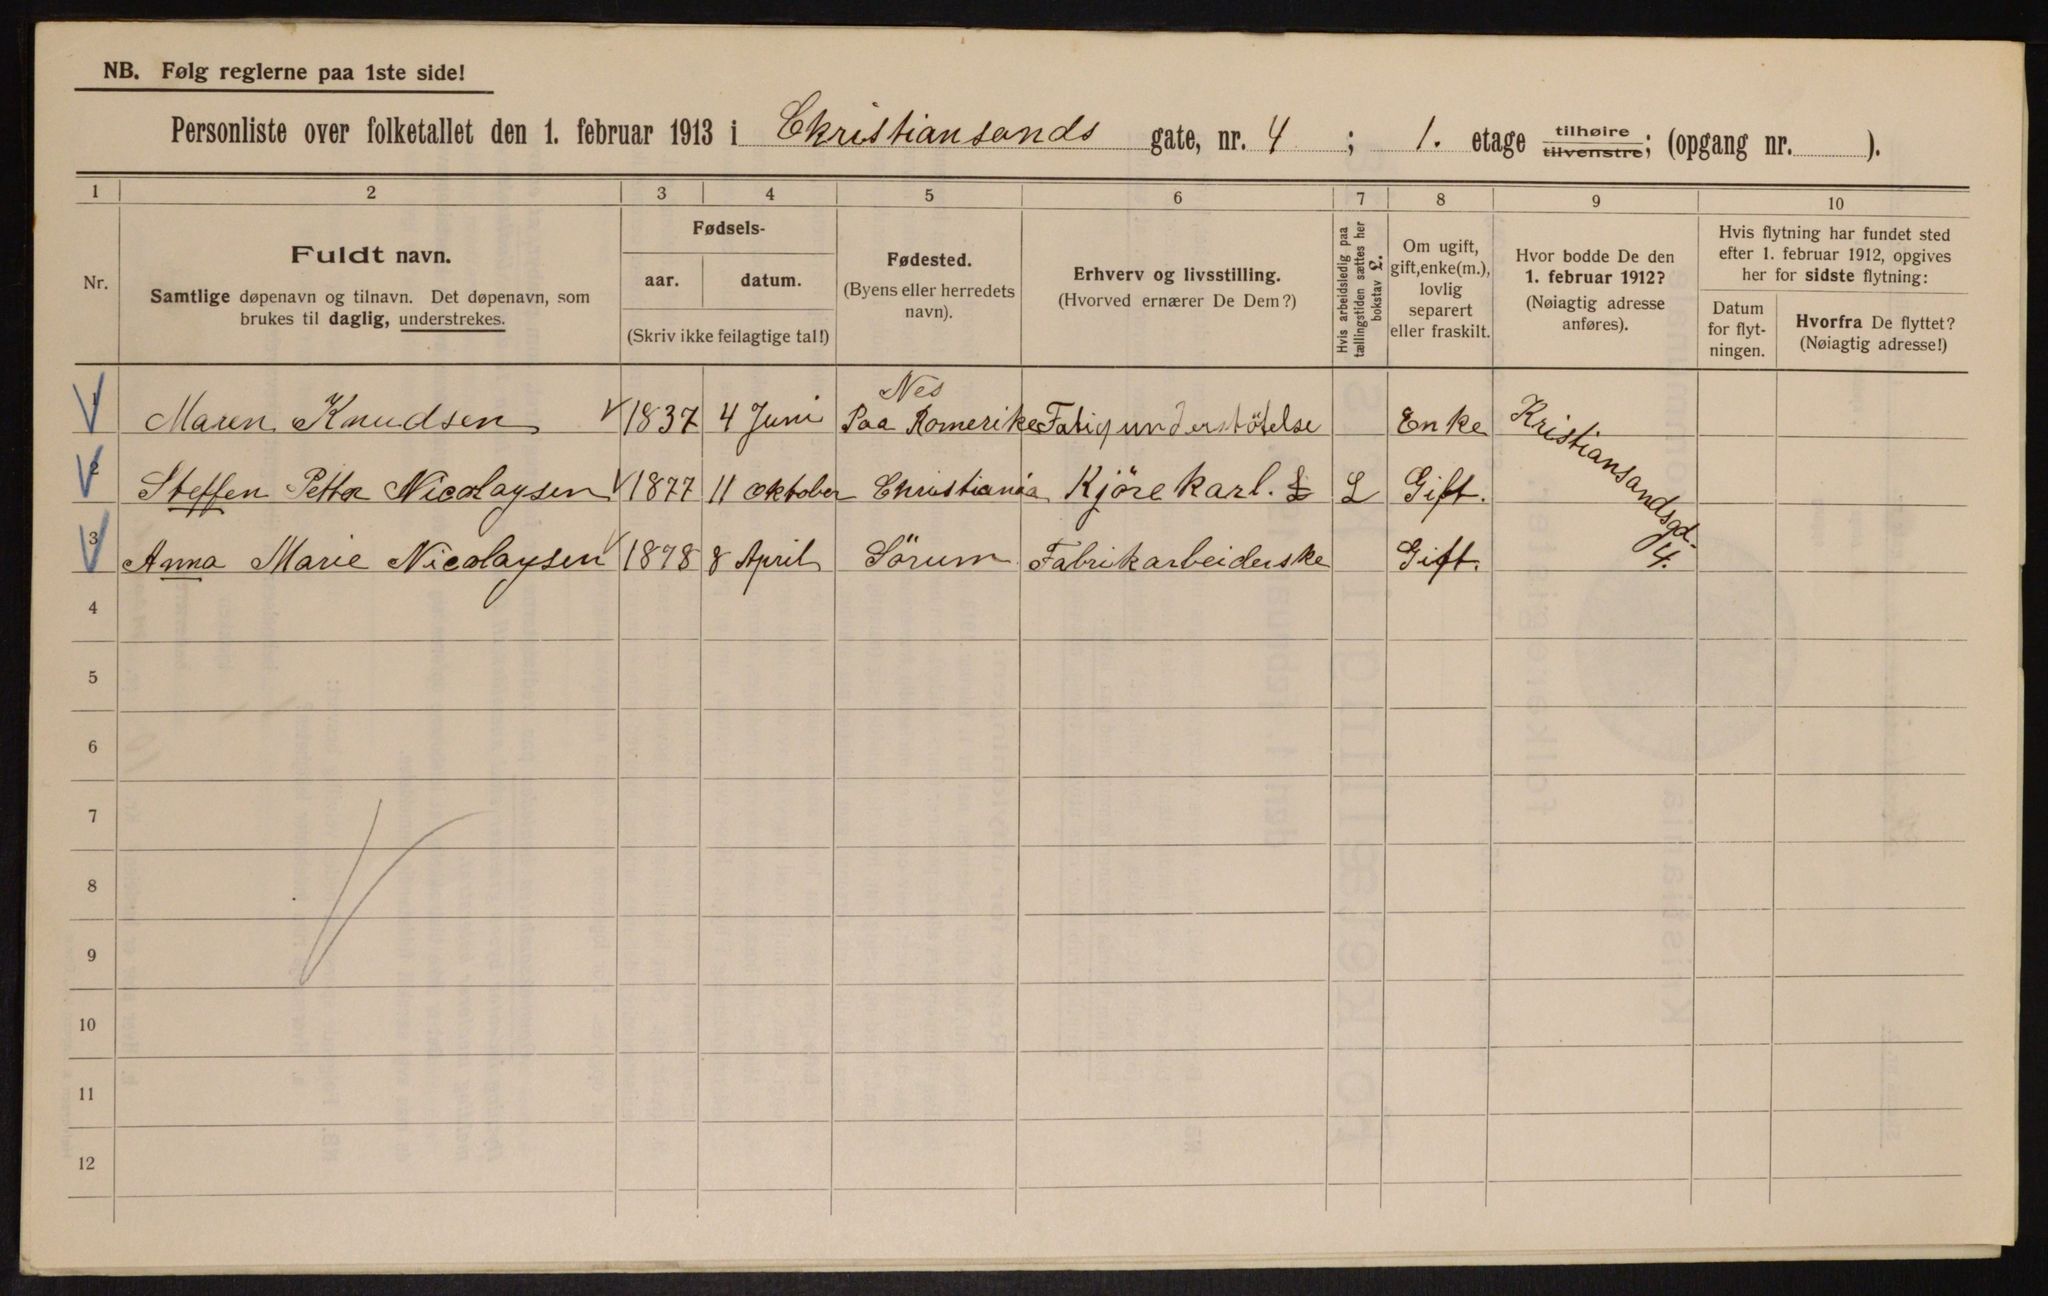 NB. Følg reglerne paa 1ste side!
Personliste over folketallet den 1. februar 1913 i Christiansands gate, nr. 4 ; 1. etage tilhøire tilvenstre; (opgang nr. ).
1 2 3 4 5 6 7 8 9 10
Nr.
Fuldt navn.
Samtlige døpenavn og tilnavn. Det døpenavn, som
brukes til daglig, understrekes.
Fødsels-
aar. datum.
(Skriv ikke feilagtige tal!)
Fødested.
(Byens eller herredets
navn).
Erhverv og livsstilling.
(Hvorved ernærer De Dem?)
Hvis arbeidsledig paa
tællingstiden sættes her
bokstav L.
Om ugift,
gift, enke(m.),
lovlig
separert
eller fraskilt.
Hvor bodde De den
1. februar 1912?
(Nøiagtig adresse
anføres).
Hvis flytning har fundet sted
efter 1. februar 1912, opgives
her for sidste flytning:
Datum
for flyt-
ningen.
Hvorfra De flyttet?
(Nøiagtig adresse!)
1 Maren Knudsen 1837 4 Juni Nes Paa Romerike Fatigunderstötelse Enke Kristiansandsgd. 4.
2 Steffen Petter Nicolaysen 1877 11 oktober Christiania Kjörekarl. L L Gift.
3 Anna Marie Nicolaysen 1878 8 April Sörum Fabrikarbeiderske Gift.
4
5
6
7
8
9
10
11
12